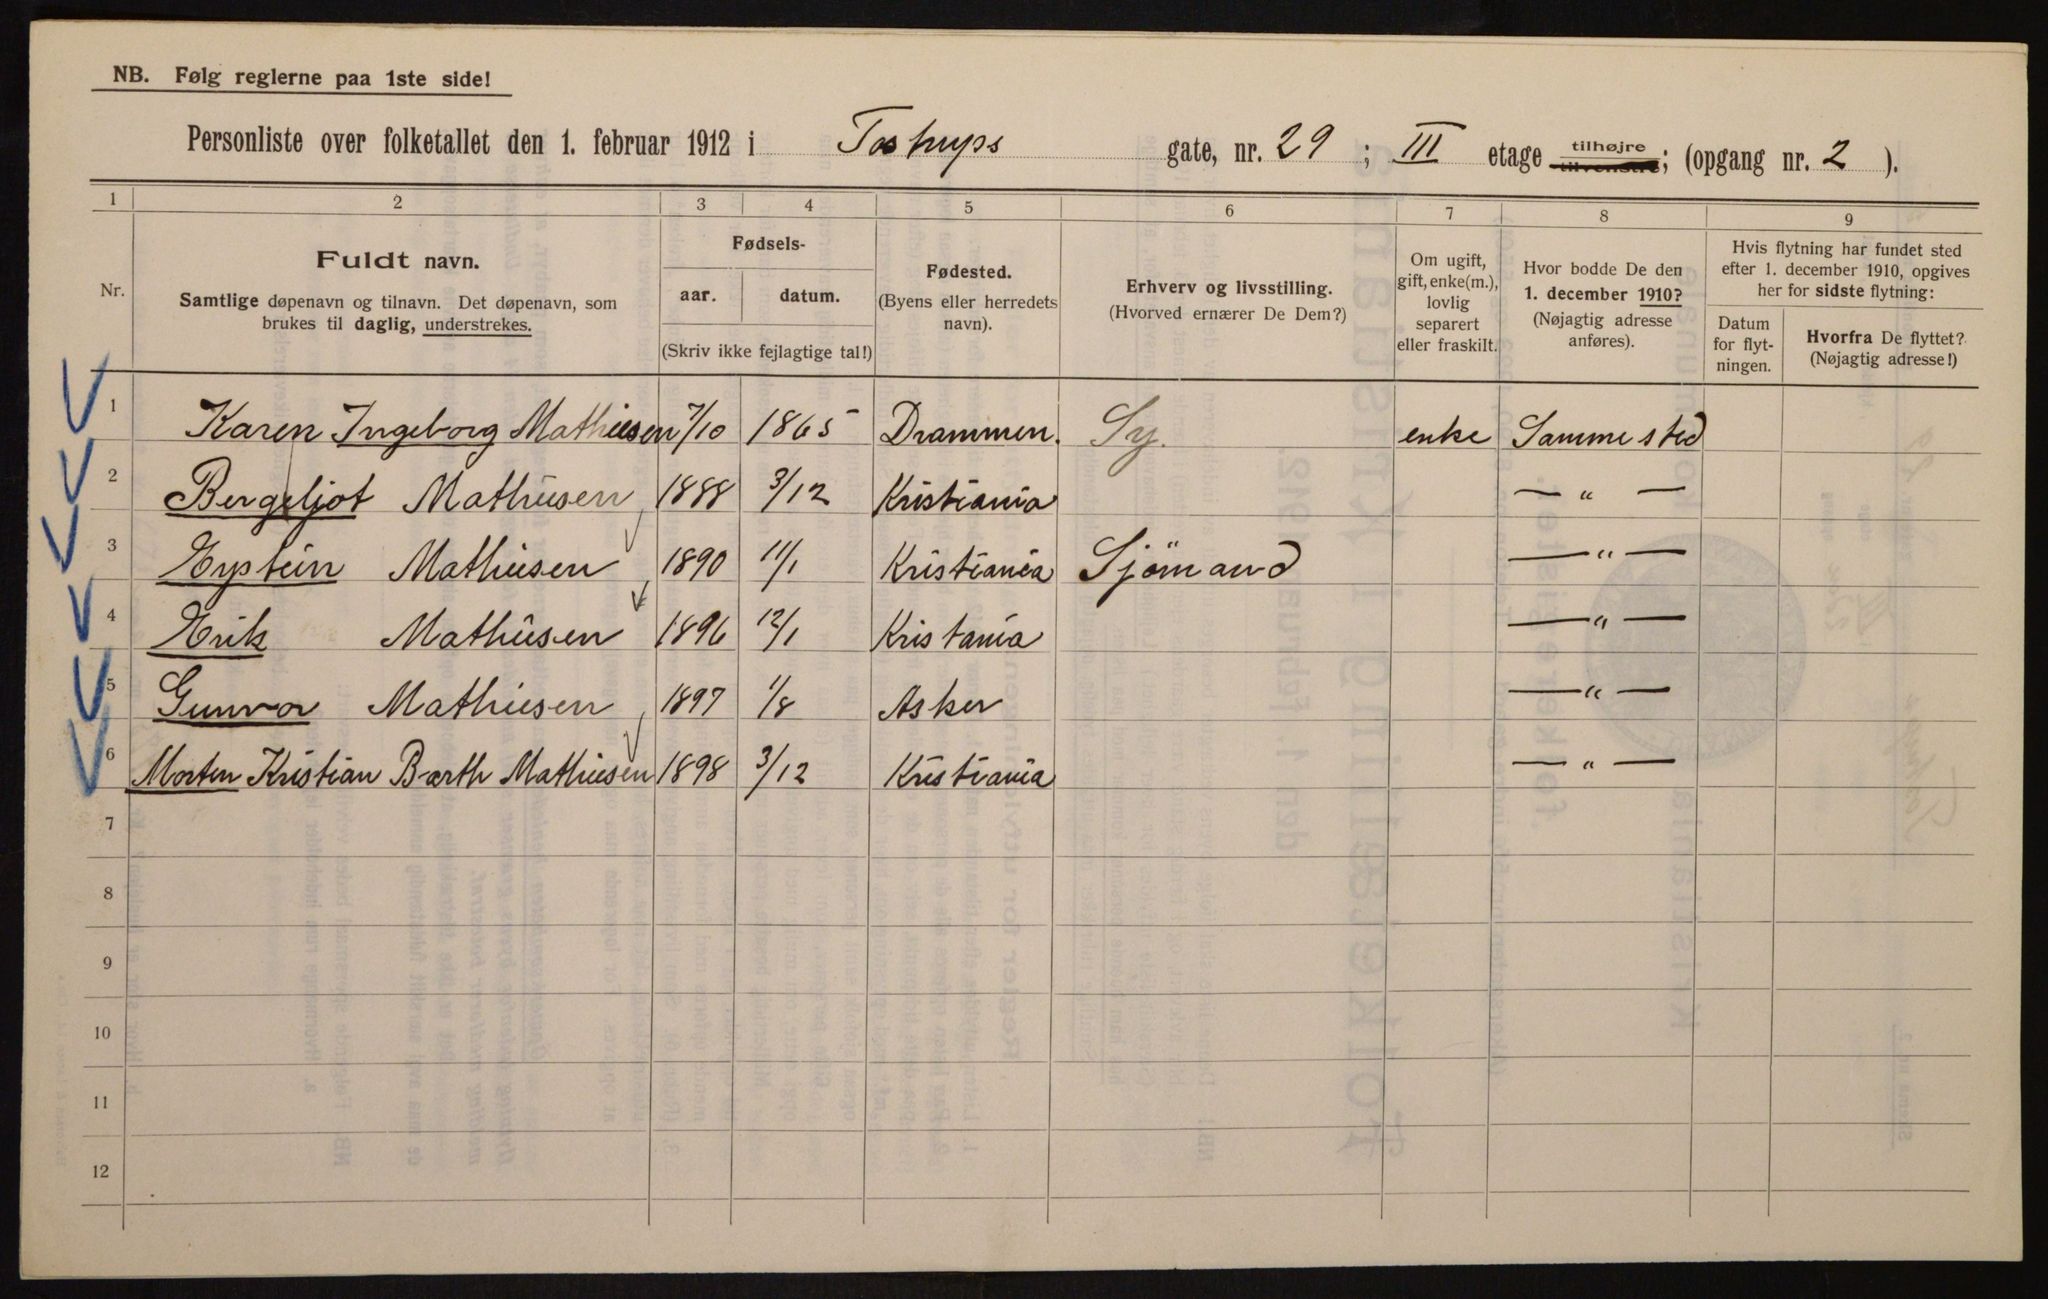 NB. Følg reglerne paa 1ste side!
Personliste over folketallet den 1. februar 1912 i Tostrups gate, nr. 29 ; III etage tilhøjre tilvenstre; (opgang nr. 2 ).
1 2 3 4 5 6 7 8 9
Nr.
Fuldt navn.
Samtlige døpenavn og tilnavn. Det døpenavn, som
brukes til daglig, understrekes.
Fødsels-
aar. datum.
(Skriv ikke fejlagtige tal!)
Fødested.
(Byens eller herredets
navn).
Erhverv og livsstilling.
(Hvorved ernærer De Dem?)
Om ugift,
gift, enke(m.),
lovlig
separert
eller fraskilt.
Hvor bodde De den
1. december 1910?
(Nøjagtig adresse
anføres).
Hvis flytning har fundet sted
efter 1. december 1910, opgives
her for sidste flytning:
Datum
for flyt-
ningen.
Hvorfra De flyttet?
(Nøjagtig adresse!)
1 Karen Ingeborg Mathiesen 7/10 1865 Drammen. Sy. enke Samme sted
2 Bergeljot Mathiesen 1888 3/12 Kristiania — " —
3 Eystein Mathiesen 1890 11/1 Kristiania Sjömand — " —
4 Erik Mathiesen 1896 12/1 Kristania — " —
5 Gunvor Mathiesen 1897 1/8 Asker — " —
6 Morten Kristian Bærth Mathiesen 1898 3/12 Kristiania — " —
7
8
9
10
11
12